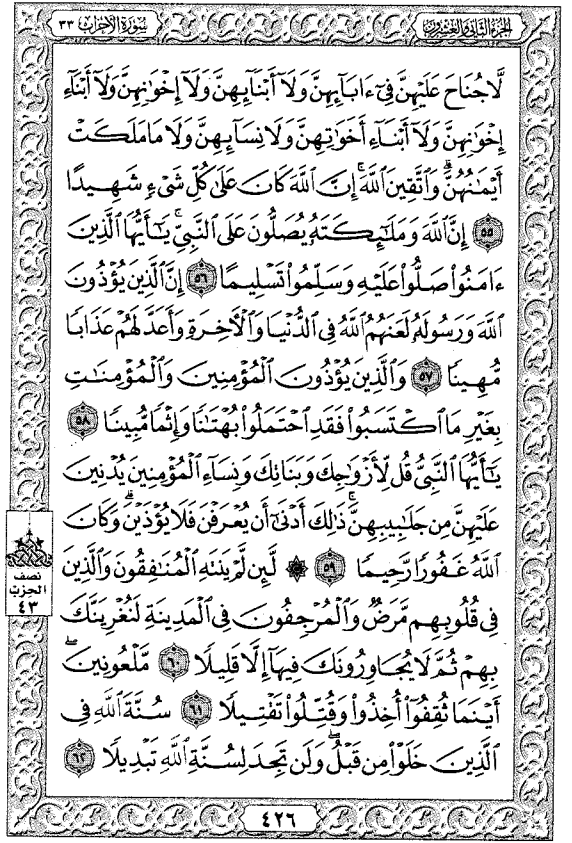 سورة الأحزاب ٣٣
الجزء الثاني والعشرون
لَّا جُنَاحَ عَلَيْهِنَّ فِىٓ ءَابَآئِهِنَّ وَلَآ أَبْنَآئِهِنَّ وَلَآ إِخْوَٰنِهِنَّ وَلَآ أَبْنَآءِ
إِخْوَٰنِهِنَّ وَلَآ أَبْنَآءِ أَخَوَٰتِهِنَّ وَلَا نِسَآئِهِنَّ وَلَا مَا مَلَكَتْ
أَيْمَٰنُهُنَّ ۗ وَٱتَّقِينَ ٱللَّهَ ۚ إِنَّ ٱللَّهَ كَانَ عَلَىٰ كُلِّ شَىْءٍ شَهِيدًا
٥٥ إِنَّ ٱللَّهَ وَمَلَٰٓئِكَتَهُۥ يُصَلُّونَ عَلَى ٱلنَّبِىِّ ۚ يَٰٓأَيُّهَا ٱلَّذِينَ
ءَامَنُوا۟ صَلُّوا۟ عَلَيْهِ وَسَلِّمُوا۟ تَسْلِيمًا ٥٦ إِنَّ ٱلَّذِينَ يُؤْذُونَ
ٱللَّهَ وَرَسُولَهُۥ لَعَنَهُمُ ٱللَّهُ فِى ٱلدُّنْيَا وَٱلْءَاخِرَةِ وَأَعَدَّ لَهُمْ عَذَابًا
مُّهِينًا ٥٧ وَٱلَّذِينَ يُؤْذُونَ ٱلْمُؤْمِنِينَ وَٱلْمُؤْمِنَٰتِ
بِغَيْرِ مَا ٱكْتَسَبُوا۟ فَقَدِ ٱحْتَمَلُوا۟ بُهْتَٰنًا وَإِثْمًا مُّبِينًا ٥٨
يَٰٓأَيُّهَا ٱلنَّبِىُّ قُل لِّأَزْوَٰجِكَ وَبَنَاتِكَ وَنِسَآءِ ٱلْمُؤْمِنِينَ يُدْنِينَ
عَلَيْهِنَّ مِن جَلَٰبِيبِهِنَّ ۚ ذَٰلِكَ أَدْنَىٰٓ أَن يُعْرَفْنَ فَلَا يُؤْذَيْنَ ۗ وَكَانَ
ٱللَّهُ غَفُورًا رَّحِيمًا ٥٩ ۞ لَّئِن لَّمْ يَنتَهِ ٱلْمُنَٰفِقُونَ وَٱلَّذِينَ
فِى قُلُوبِهِم مَّرَضٌ وَٱلْمُرْجِفُونَ فِى ٱلْمَدِينَةِ لَنُغْرِيَنَّكَ
بِهِمْ ثُمَّ لَا يُجَاوِرُونَكَ فِيهَآ إِلَّا قَلِيلًا ٦٠ مَّلْعُونِينَ ۖ
أَيْنَمَا ثُقِفُوٓا۟ أُخِذُوا۟ وَقُتِّلُوا۟ تَقْتِيلًا ٦١ سُنَّةَ ٱللَّهِ فِى
ٱلَّذِينَ خَلَوْا۟ مِن قَبْلُ ۖ وَلَن تَجِدَ لِسُنَّةِ ٱللَّهِ تَبْدِيلًا ٦٢
نصف
الحزب
٤٣
٤٢٦